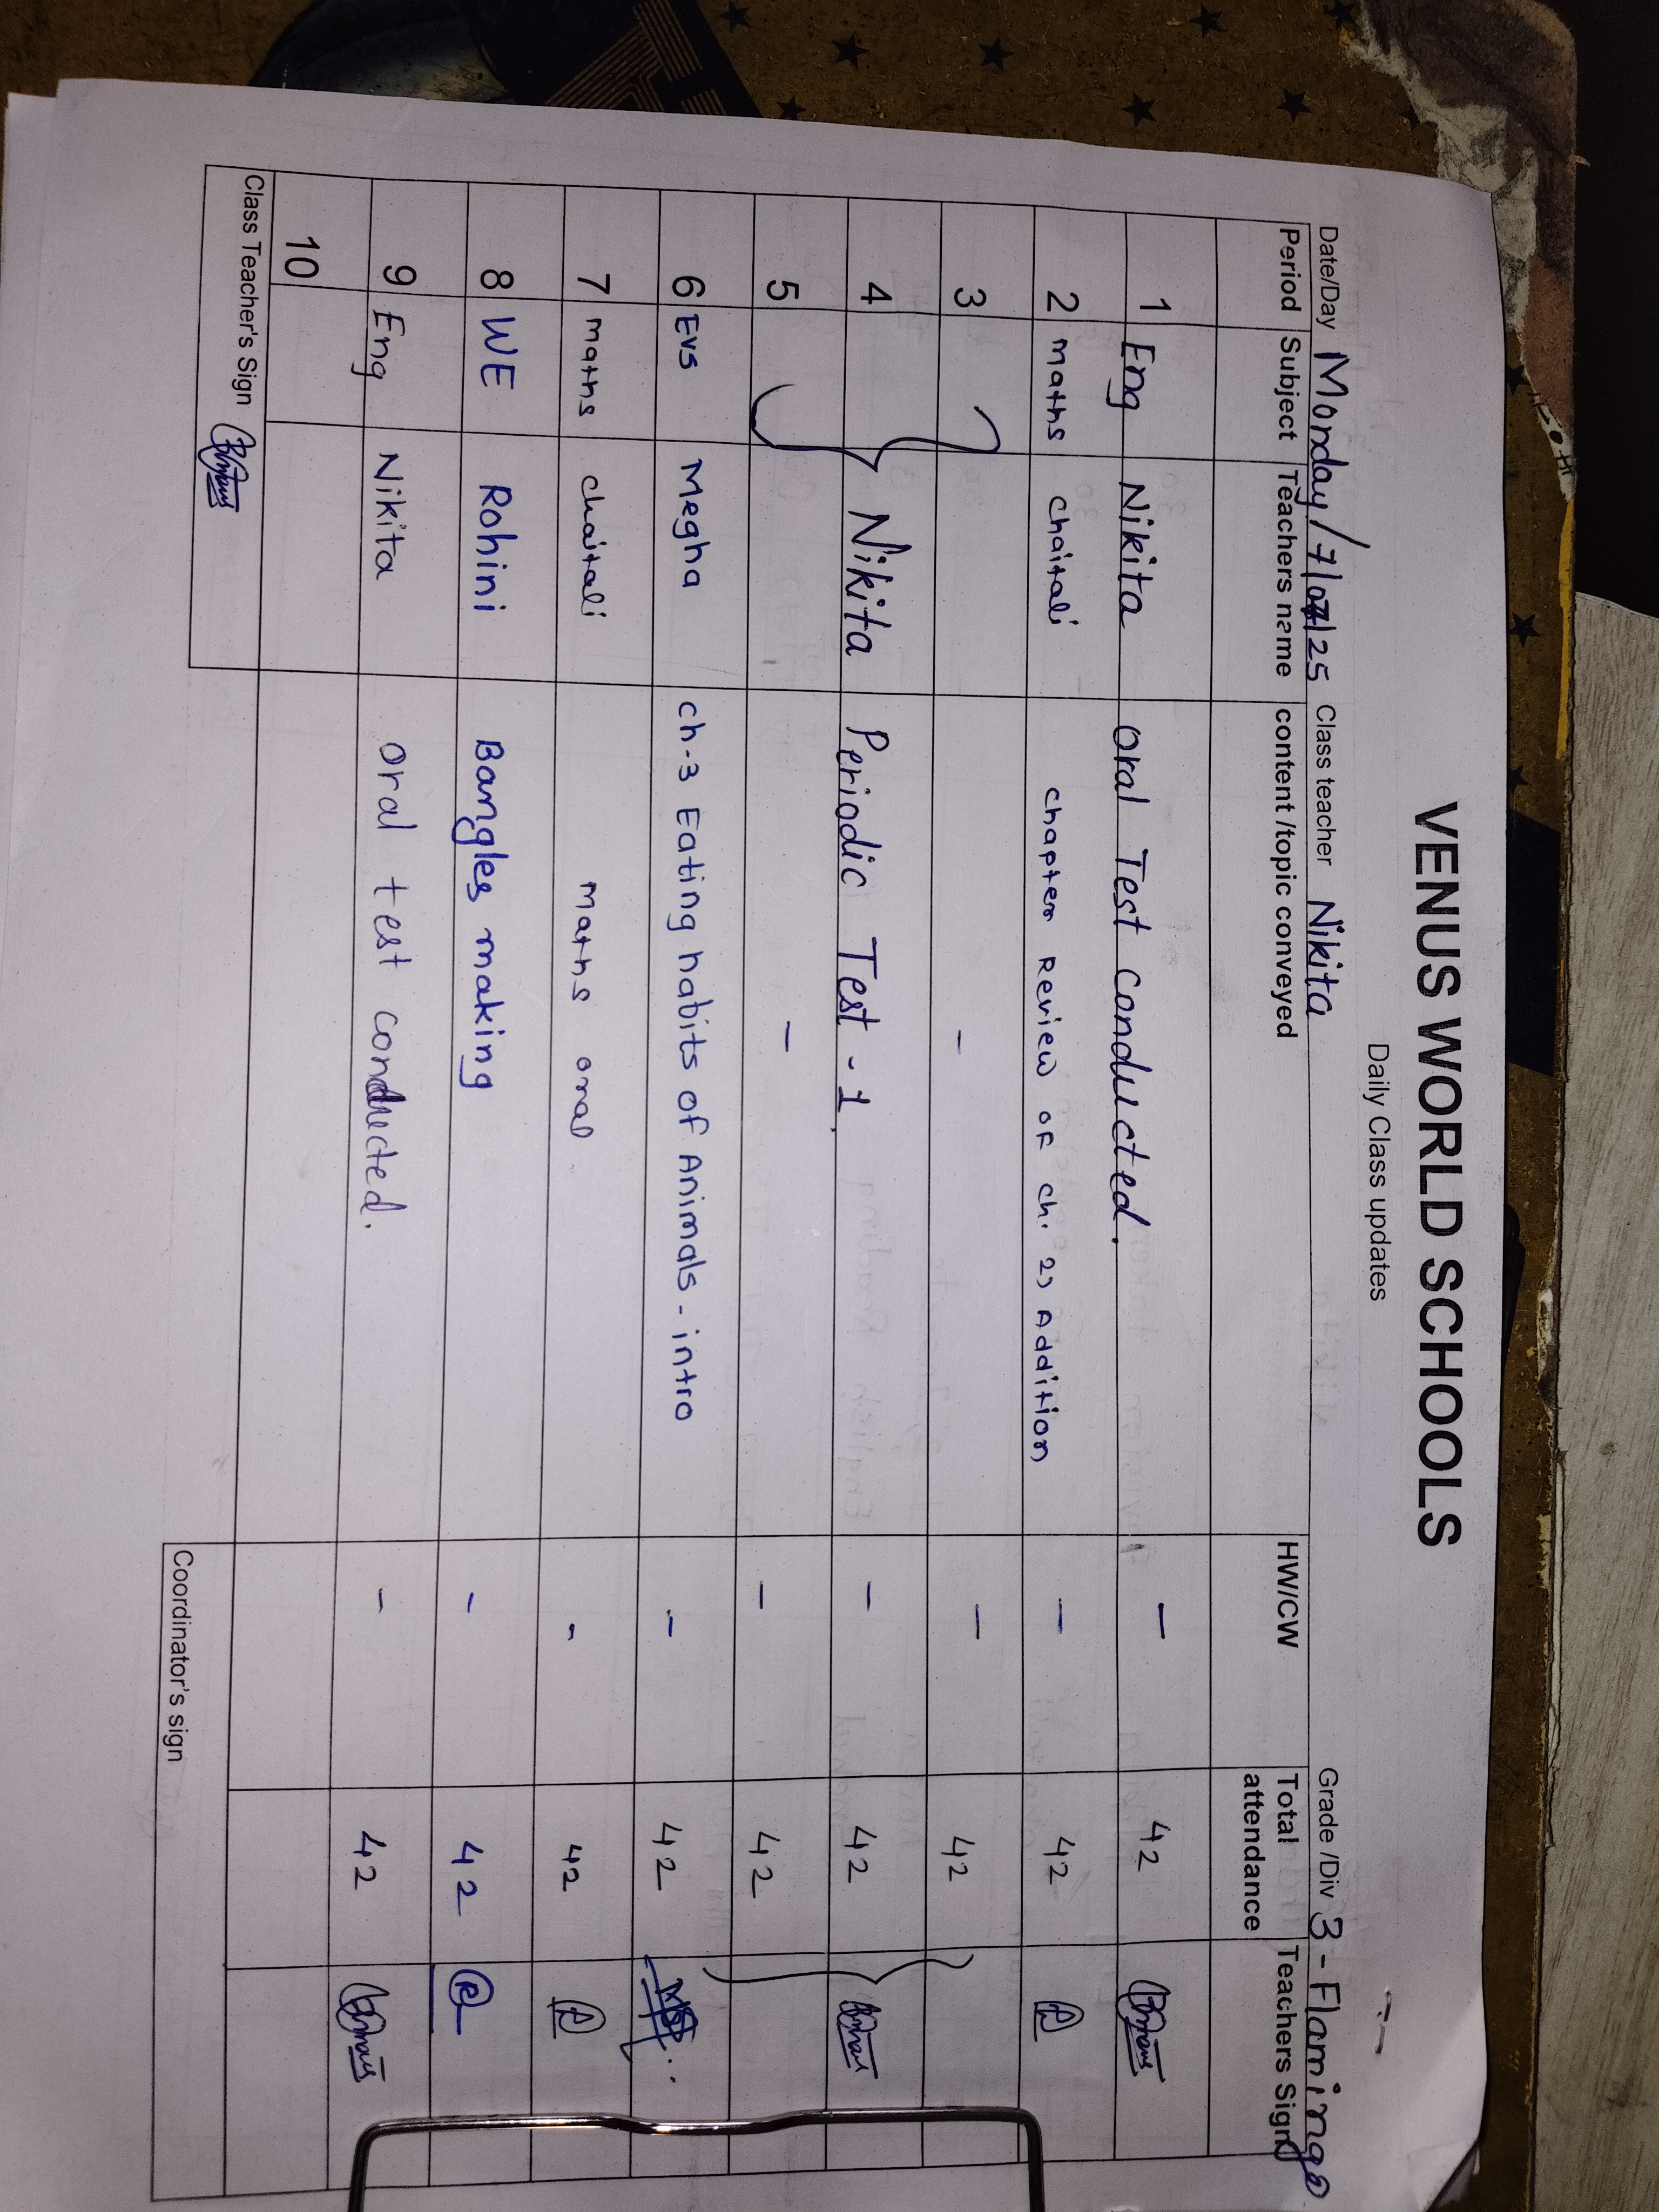 VENUS WORLD SCHOOLS
Daily Class updates
Date/Day Monday/7/07/25 Class teacher Nikita Grade /Div 3 - Flamingo
Period Subject Teachers name content /topic conveyed HW/CW Total attendance Teachers Sign
1 Eng Nikita Oral Test Conducted. - 42
2 maths chaitali chapter Review of ch. 2, Addition - 42
3 - - 42
4 Nikita Periodic Test - 1 - 42
5 - - 42
6 Evs Megha ch-3 Eating habits of Animals - intro - 42
7 maths chaitali maths oral - 42
8 WE Rohini Bangles making - 42 R
9 Eng Nikita Oral test conducted. - 42
10
Class Teacher's Sign
Coordinator's sign